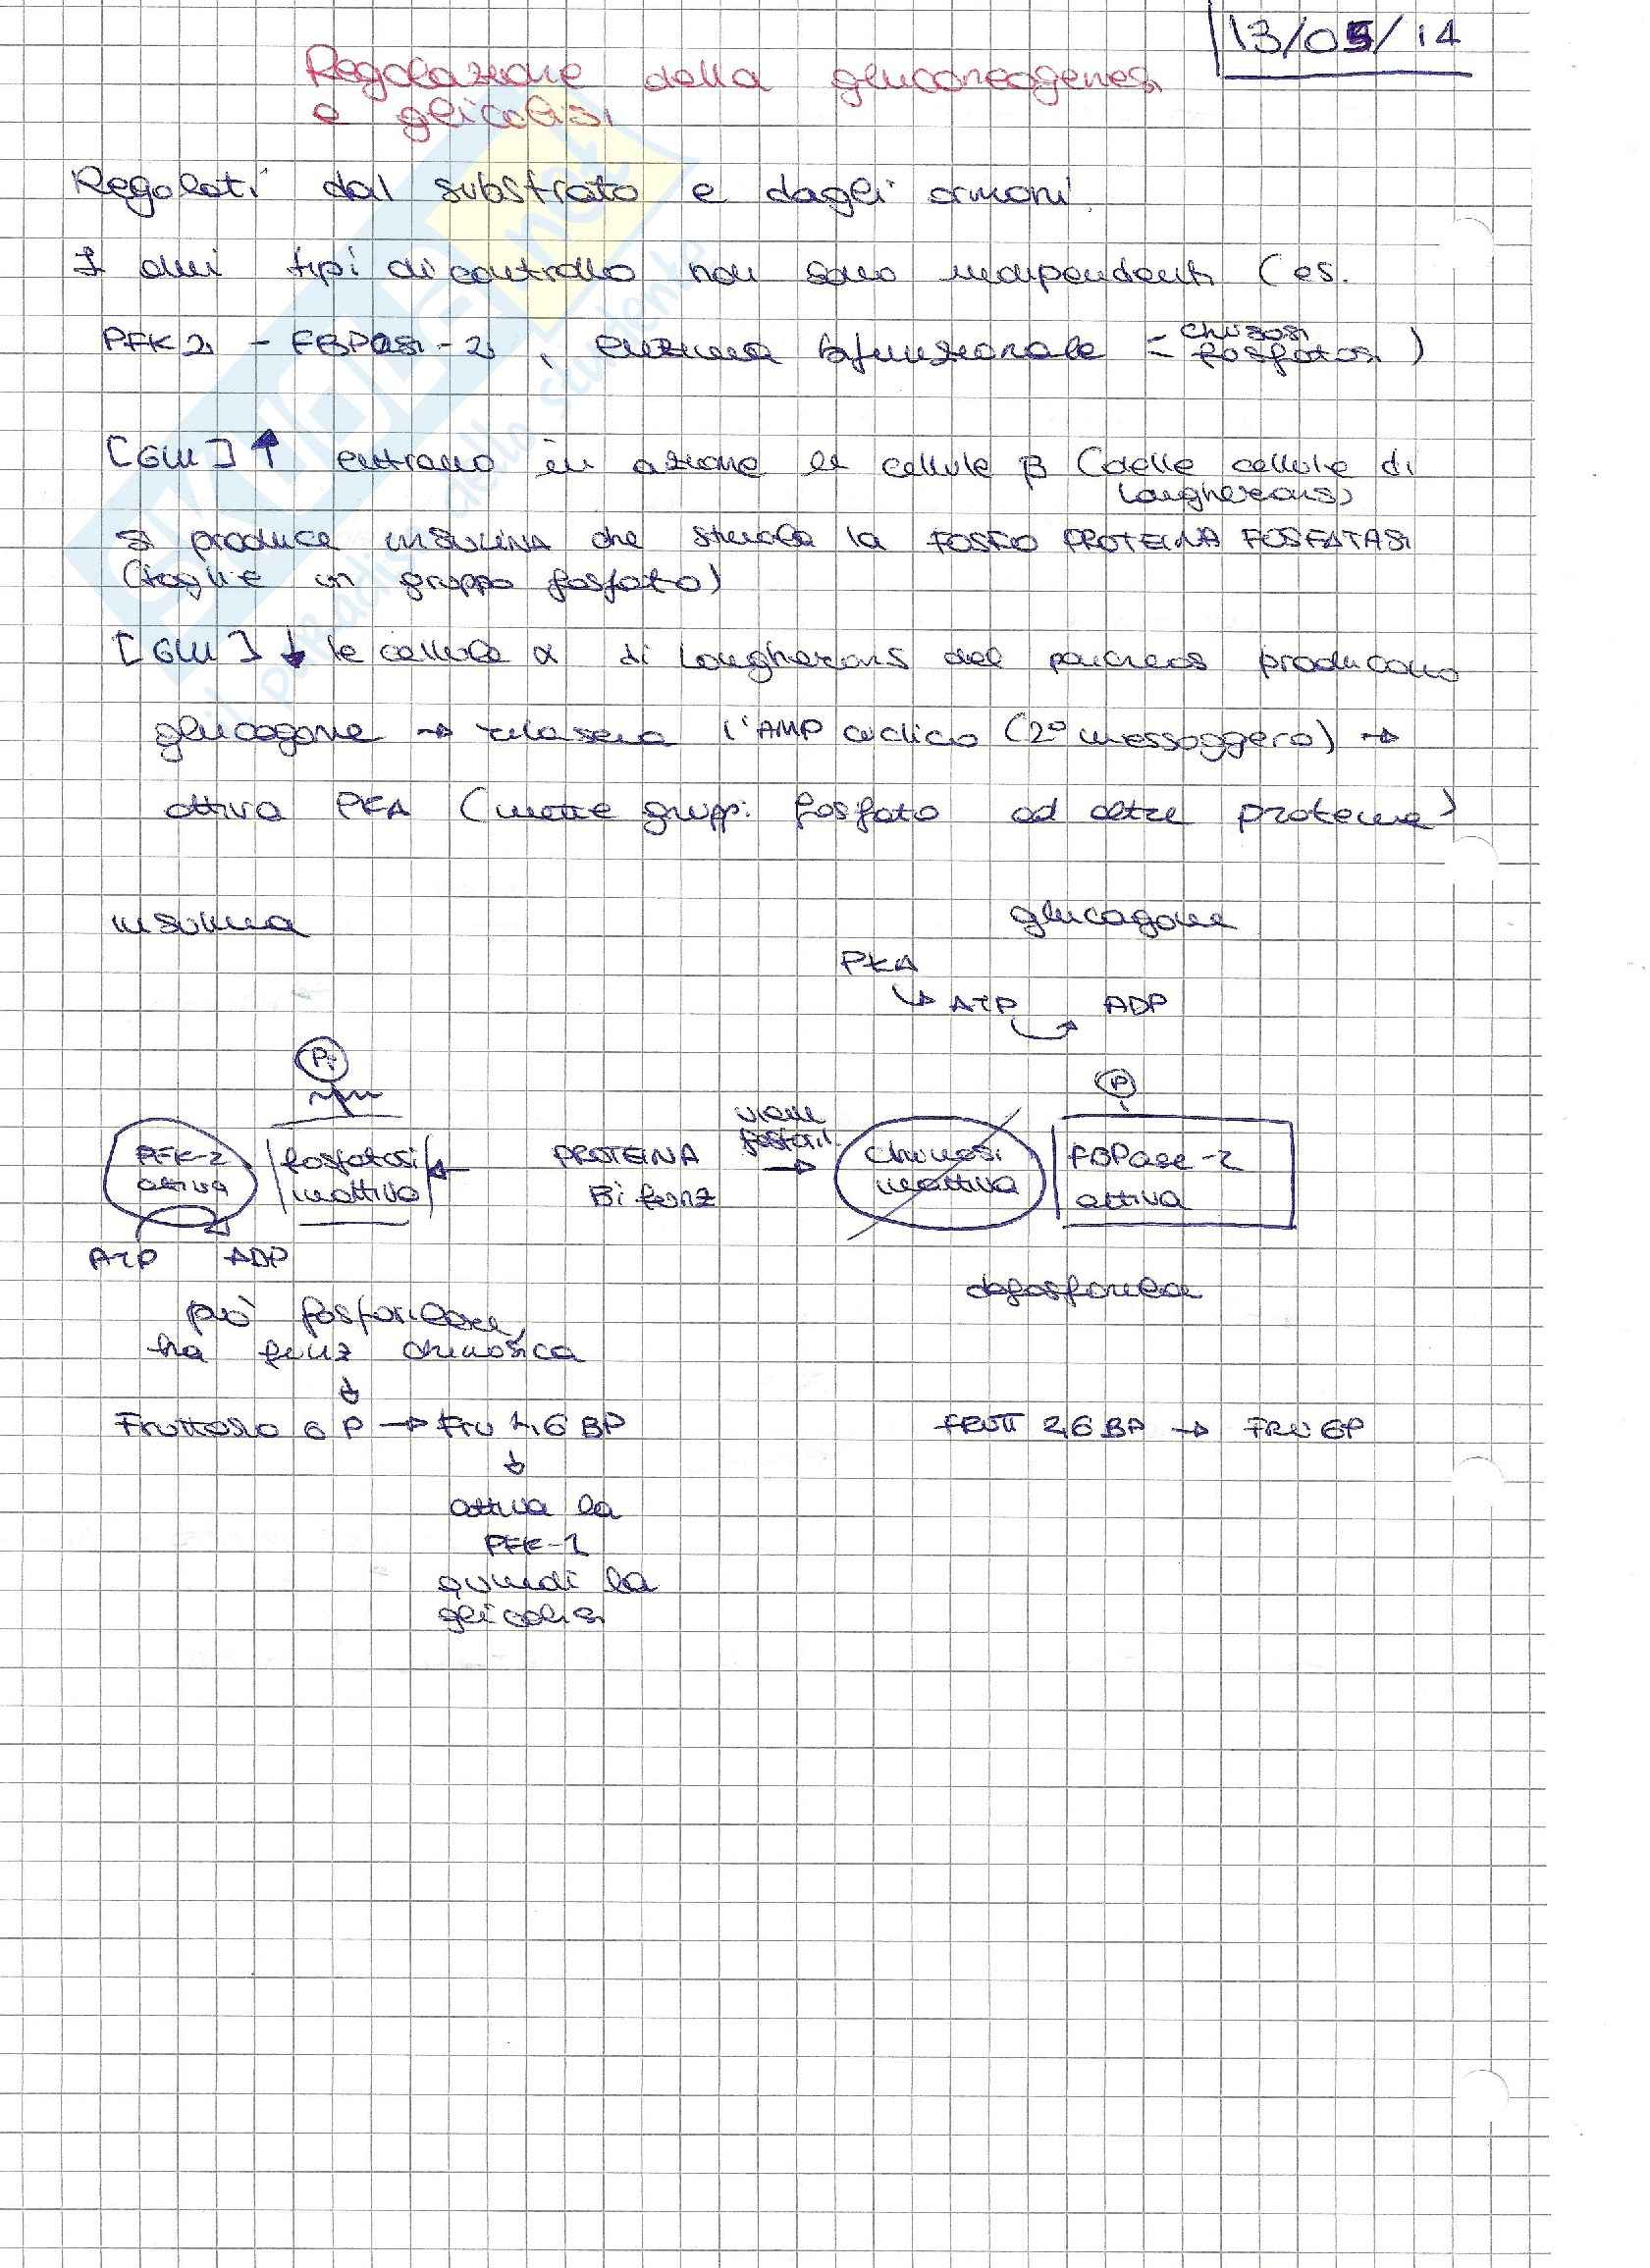 13/05/14
Regolazione della gluconeogenesi
e glicolisi
Regolati dal substrato e dagli ormoni.
I due tipi di controllo non sono indipendenti (es.
PFK2 - FBPasi-2, enzima bifunzionale = chinasi
fosfatasi)
[GLU] ↑ entrano in azione le cellule β (delle cellule di
Langherans)
si produce INSULINA che stimola la FOSFO PROTEINA FOSFATASI
(toglie un gruppo fosfato)
[GLU] ↓ le cellule α di Langherans del pancreas producono
glucagone → rilascia l'AMP ciclico (2° messaggero) →
attiva PKA (mette gruppi fosfato ad altre proteine)
insulina glucagone
PKA
ATP ADP
Pi P
PFK-2
attiva
fosfatasi
inattiva
PROTEINA
Bi funz
viene
fosforil.
chinasi
inattiva
FBPase-2
attiva
ATP ADP
defosforila
può fosforilare,
ha funz chinasica
↓
Fruttosio 6 P → Fru 2,6 BP FRUTT 2,6 BP → FRU 6P
↓
attiva la
PFK-1
quindi la
glicolisi
il paradiso dello studente